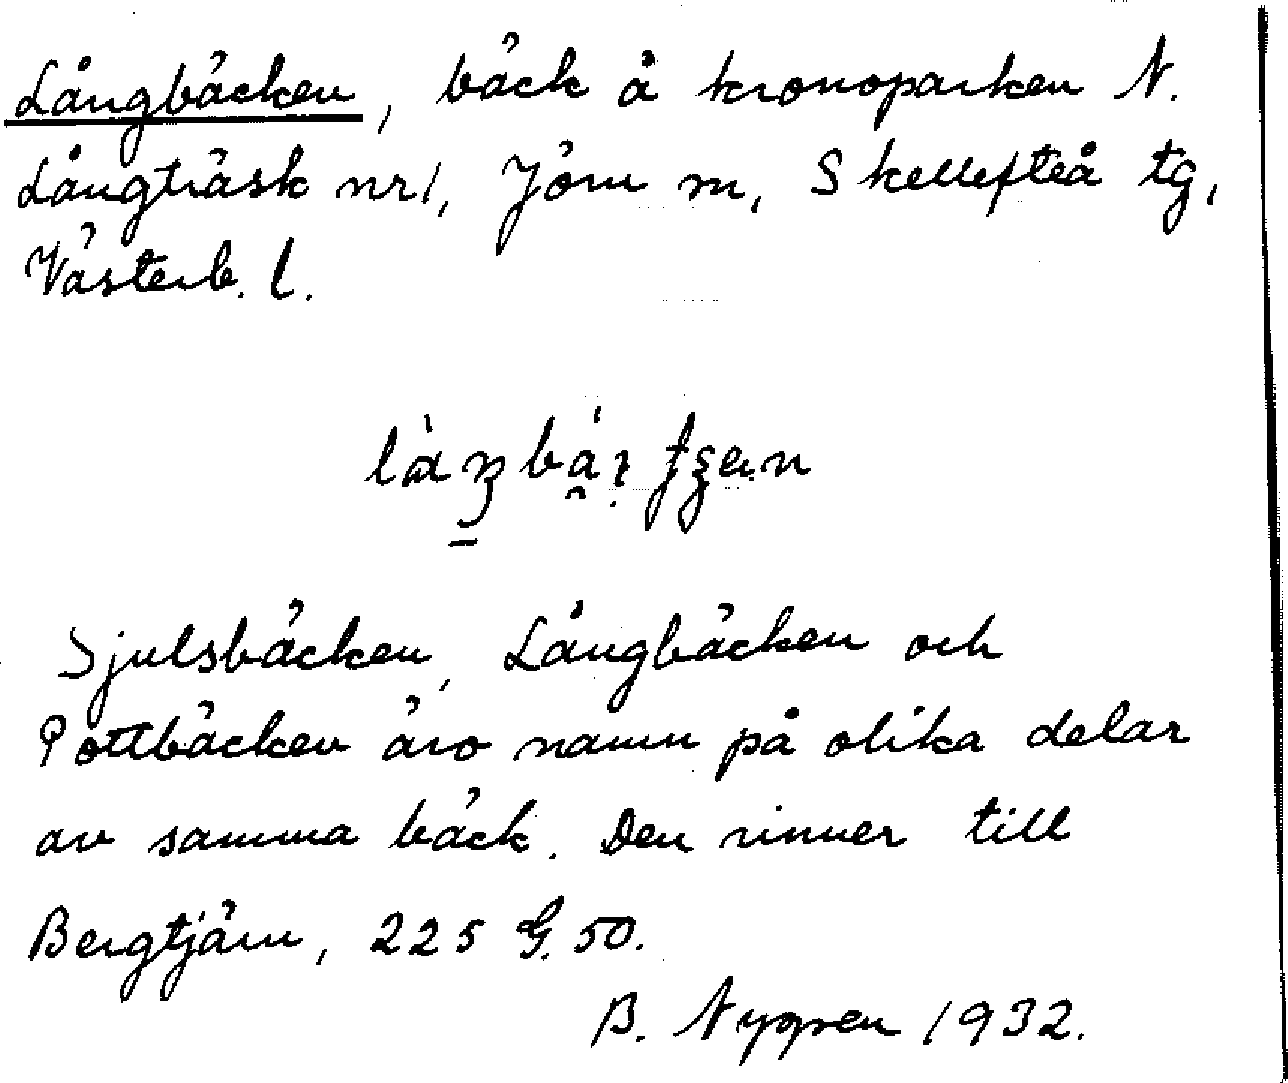 Långbäcken, bäck å kronoparken N.
Långträsk nr 1, Jörn sn, Skellefteå tg,
Västerb. l.
Sjulsbäcken, Långbäcken och
Pottbäcken äro namn på olika delar
av samma bäck. Den rinner till
Bergtjärn, 225 G. 50.
B. Nyppen 1932.